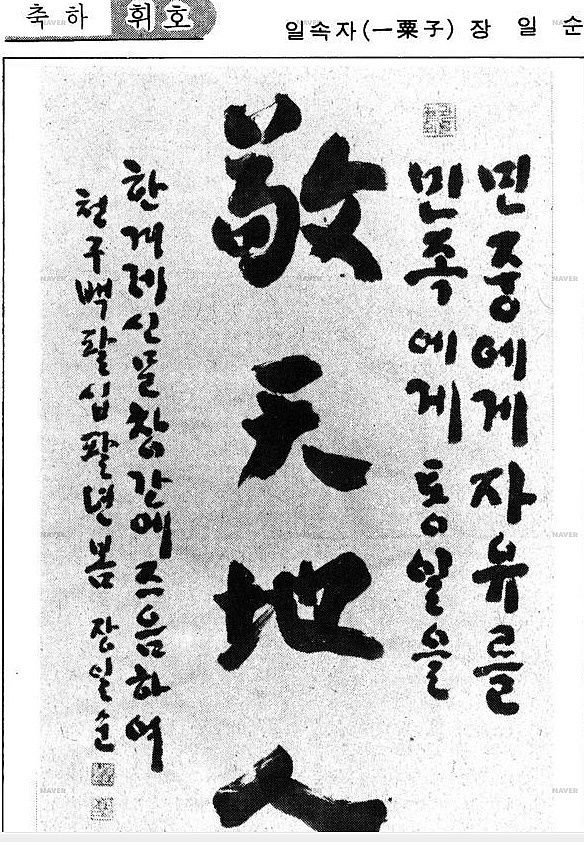 축하 휘호
일속자(一粟子) 장 일 순
민중에게 자유를
민족에게 통일을
敬天地人
한겨레신문 창간에 즈음하여
천구백팔십팔년 봄 장일순